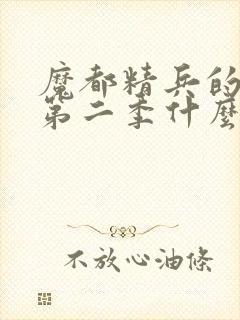 魔都精兵的
第二季什麼
不放心油條